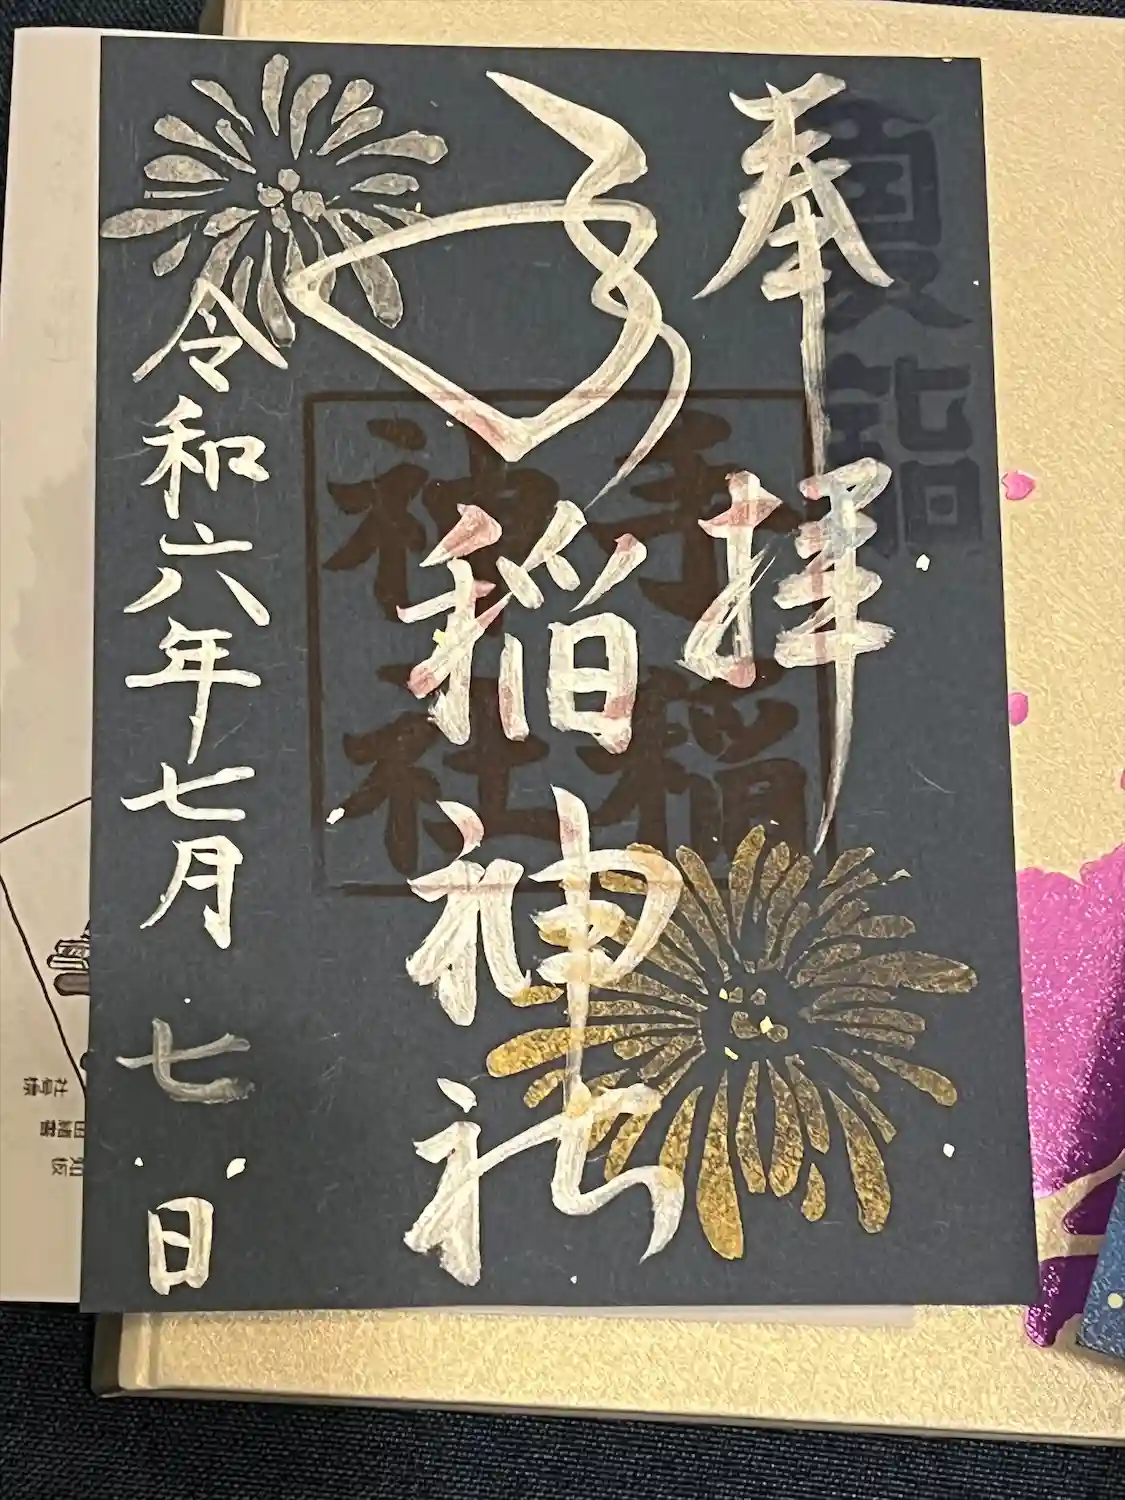 奉拝
夏詣
手稲神社
手稲
神社
令和六年七月七日